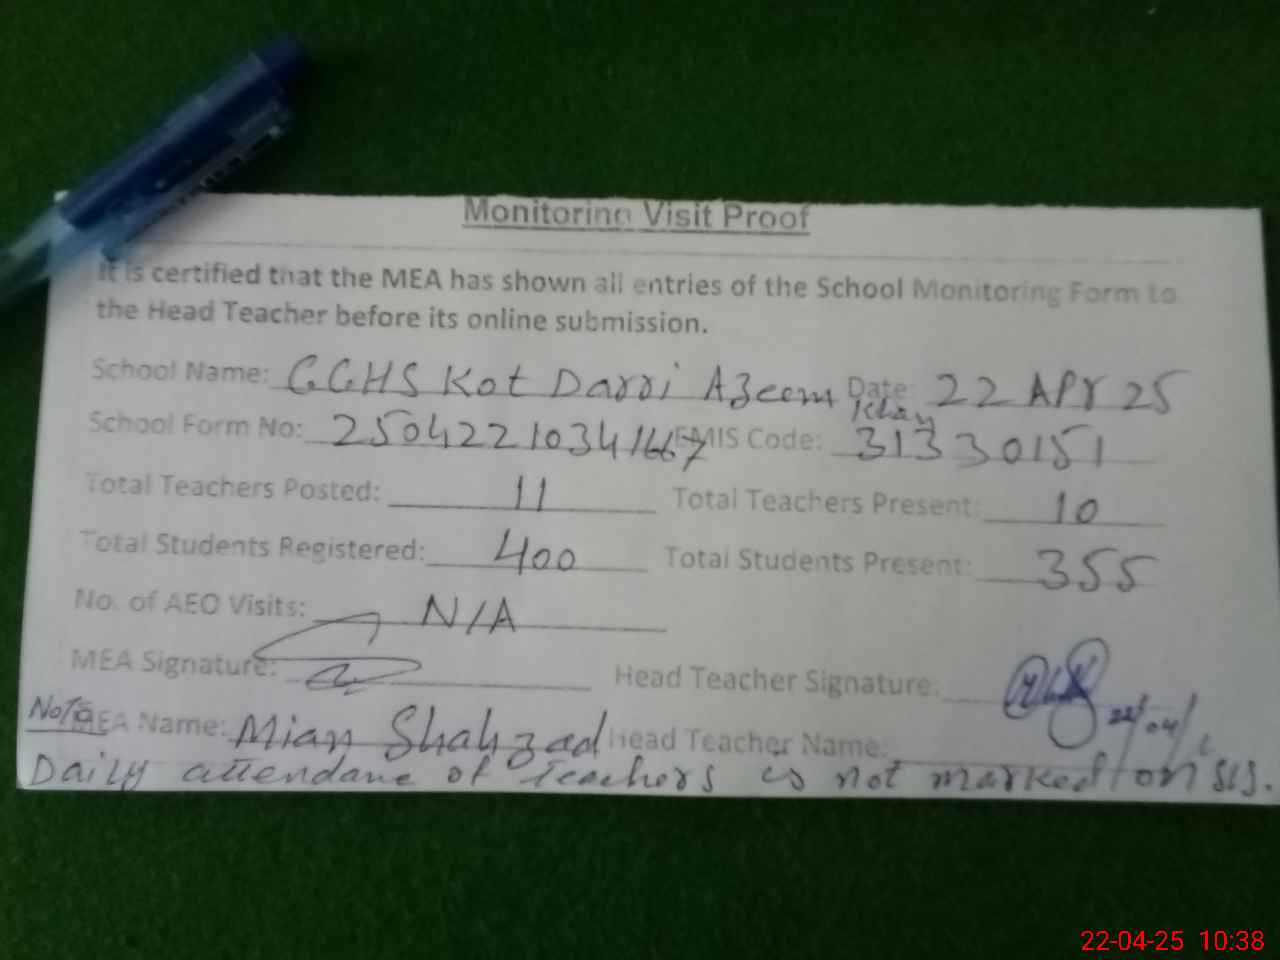 Monitoring Visit Proof
It is certified that the MEA has shown all entries of the School Monitoring Form to
the Head Teacher before its online submission.
School Name: GGHS Kot Darri Azeem Khan Date: 22 APr 25
School Form No: 25042210341667 EMIS Code: 31330151
Total Teachers Posted: 11 Total Teachers Present: 10
Total Students Registered: 400 Total Students Present: 355
No. of AEO Visits: N/A
MEA Signature: Head Teacher Signature: 22/04/
Note MEA Name: Mian Shahzad Head Teacher Name:
Daily attendane of Teachers is not marked on SIS.
22-04-25 10:38